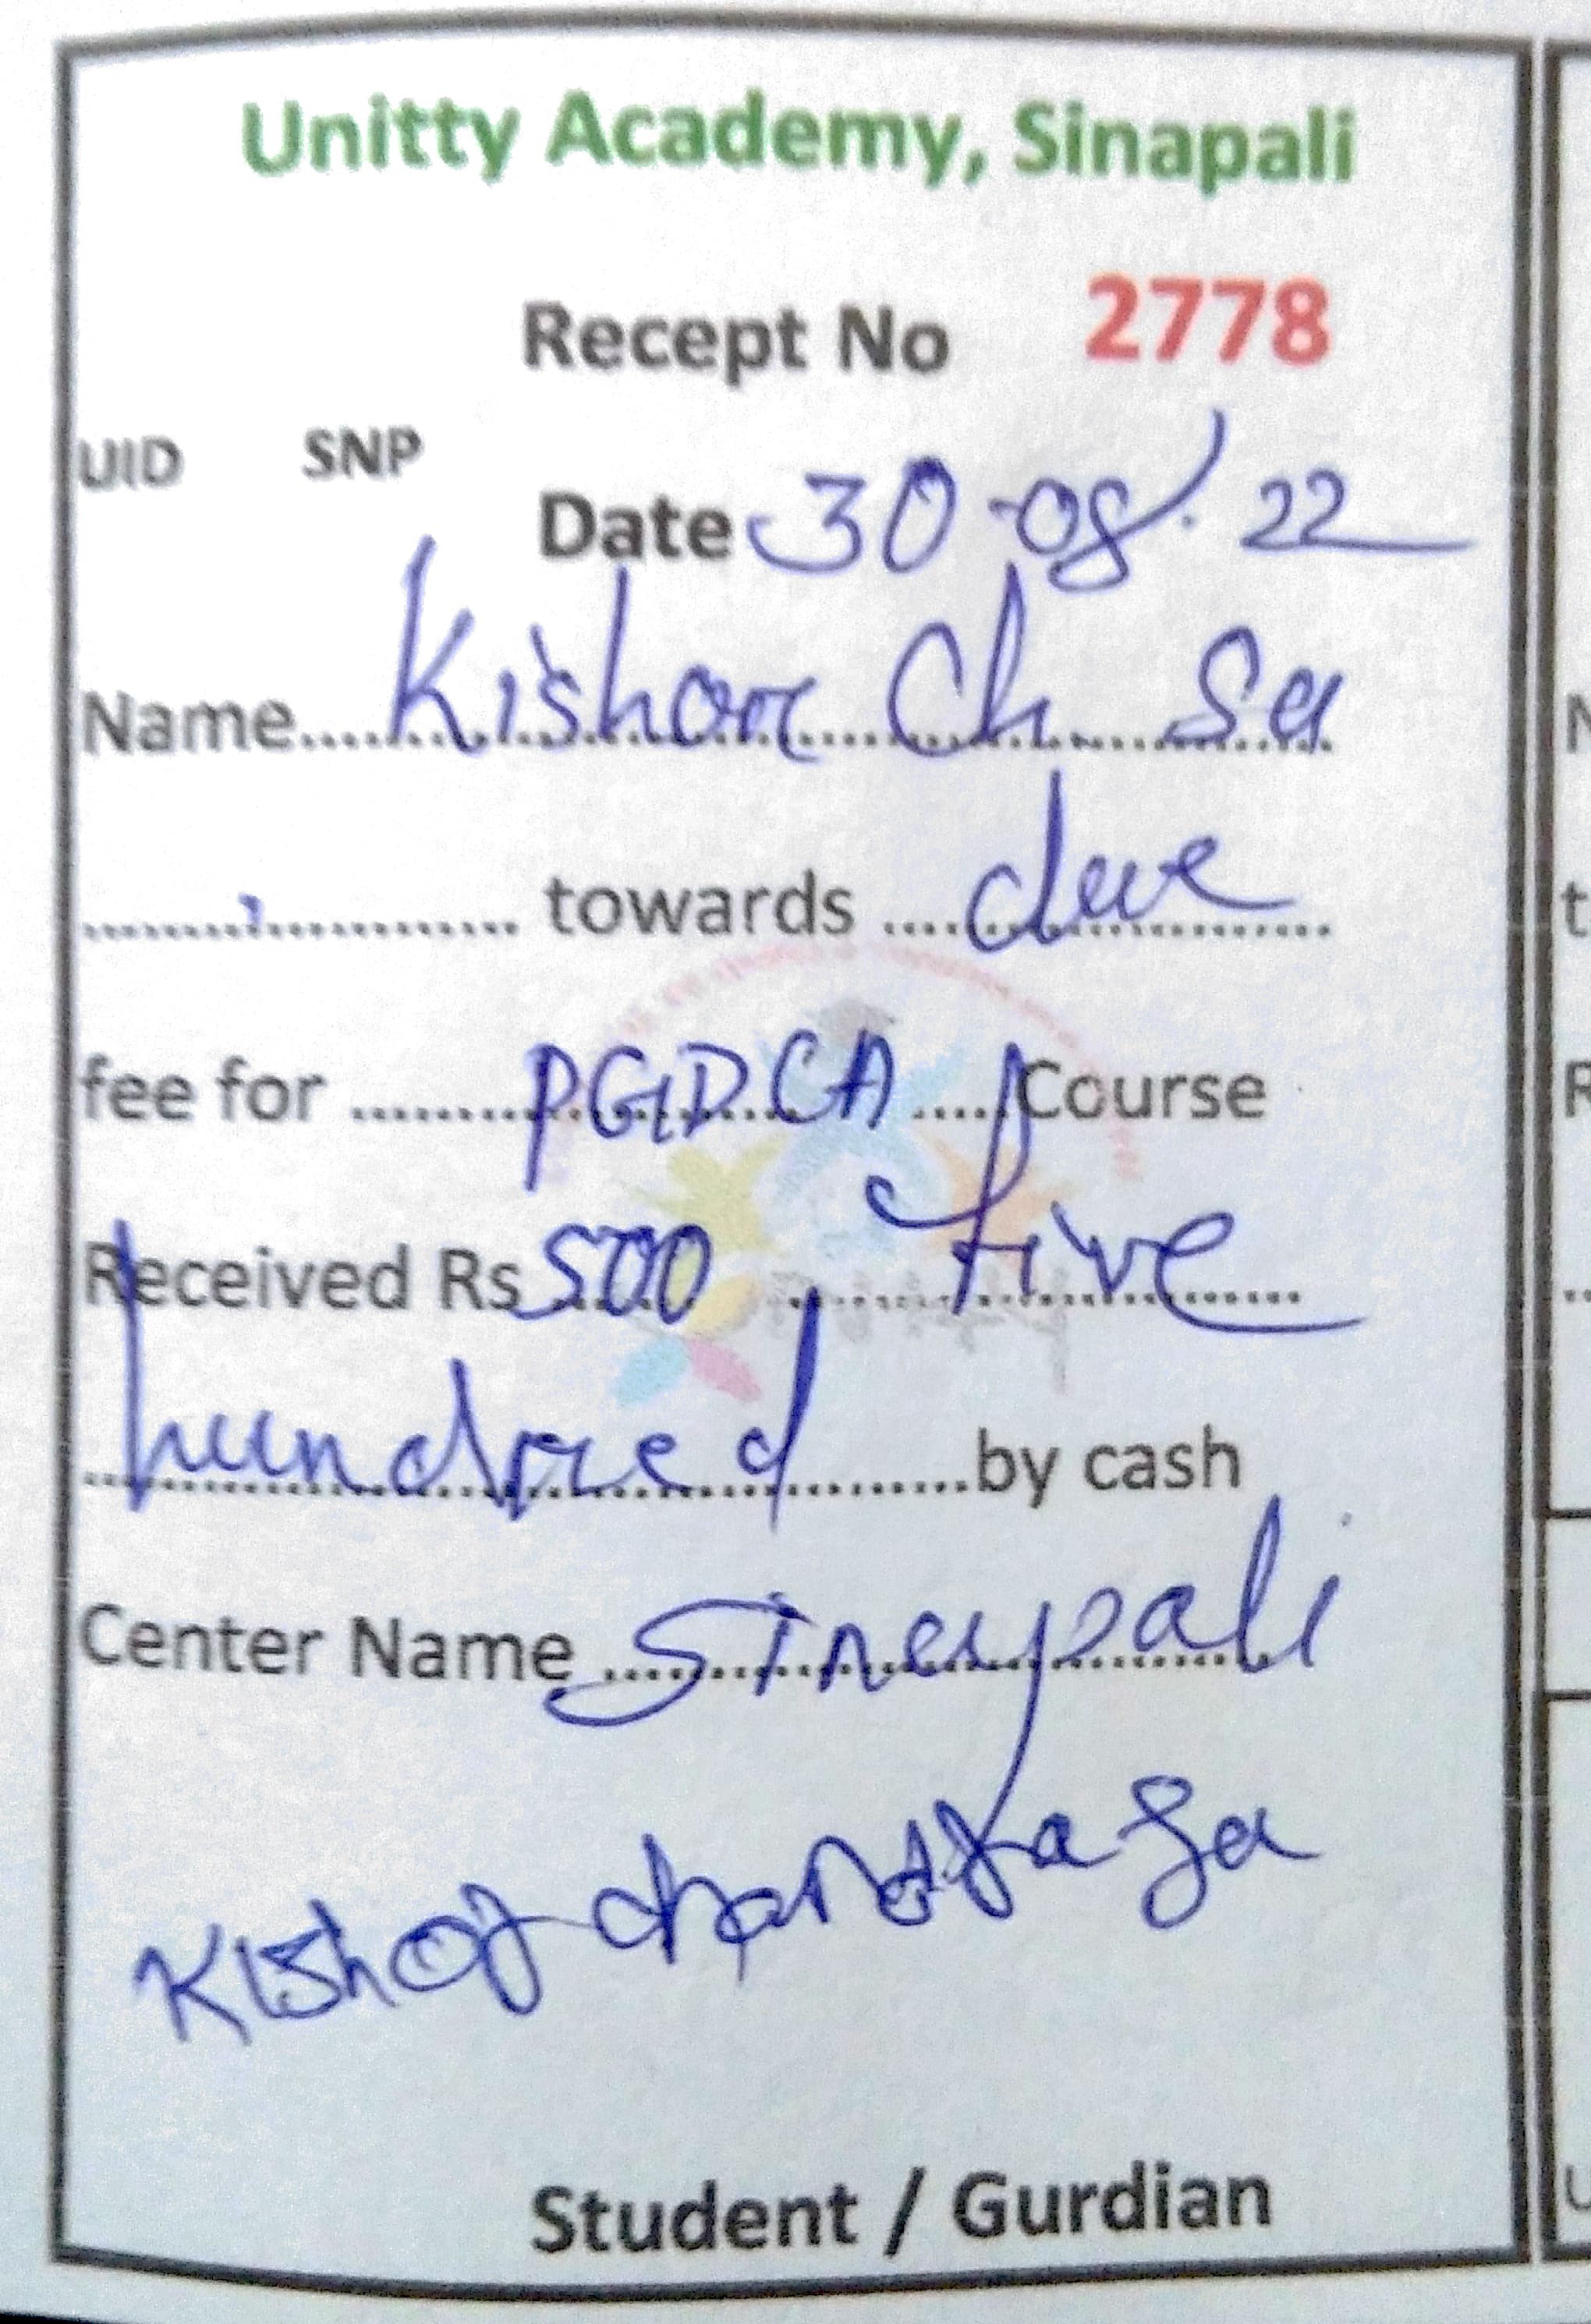 Unitty Academy, Sinapali
Recept No 2778
UID SNP
Date 30-08.22
Name....Kishor Ch. Sa
.................. towards ....due
fee for ..........PGDCA.....Course
Received Rs 500, five
hundred..........by cash
Center Name ....Sinapali
Kishor chandra Sa
Student / Gurdian